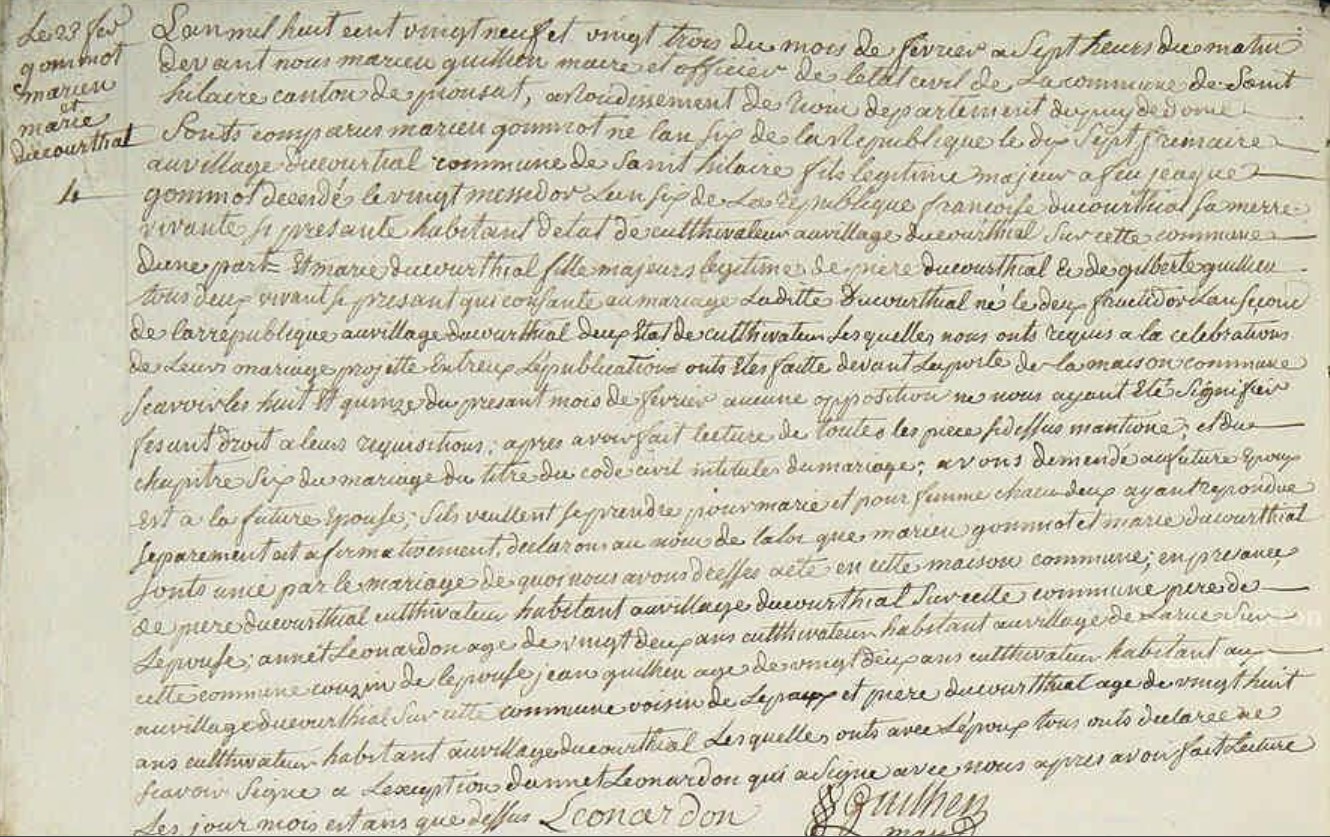 Le 23 fev
gommot
marien
et
marie
ducourthal
4
Lan mil huit cent vingt neuf et vingt trois du mois de fevrier a sept heurs du matin
devant nous marien quilhen maire et officier de letat civil de La commune de Saint
hilaire canton de pionsat, arondissement de riom departement du puy de dome
Sonts comparus marien gommot ne lan six de la Republique le dix Sept frimaire
au village ducourtial commune de Saint hilaire fils legitime majeur a feu jeaque
gommot decerdés le vingt mesidor Lan six de La republique francoise ducourthial sa merre
vivante si presante habitant detat de cultthivateur au village ducourthial Sur cette commune
dune part= Et marie ducourthial fille majeurs legitime de piere ducourthial Et de gilberte quilhen
tous deux vivant si presant qui consante au mariage Laditte Ducourthial né le deux fructidor Lan
de larrepublique au village ducourthial deux Etat de cultthivateur Lesquelles nous onts requis a la celebrations
de Leurs mariage projette Entreux Lepublication= onts Etes faitte devant La porte de la maison commune
scavoir les huit Et quinze du presant mois de fevrier aucune opposition ne nous ayant Eté Signifier
fesant droit a leurs requisitions; apres avoir fait lecture de toutes les piece si dessus mantione; et du
chapitre Six du mariage du titre du code civil intitules du mariage; avons demende au future Epoux
Est a la future Epouse; Sils veullent se prendre pour marie et pour femme chacu deux ayant repondue
separement et afirmativement, declarons au nom de la loi que marien gommot et marie ducourthial
sonts unie par le mariage de quoi nous avons dresses acte en cette maison commune; en presance
de piere ducourthial cultthivateur habitant au village ducourthial Sur cette commune pere de
Lepouse; annet Leonardon age de vingt deux ans cultthivateur habitant au village de Larue Sur
cette commune couzin de lepouse jean quilhen age de vingt deux ans cultthivateur habitant au
au village ducourthial Sur cette commune voisin de Lepoux et piere ducourtthial age de vingt huit
ans cultthivateur habitant au village ducourthial Lesquelles onts avec Lépoux tous onts declaree ne
scavoir Signe a Lexeption dannet Leonardon qui a Signe avec nous apres avoir fait Lecture
Les jour mois est ans que dessus Leonardon
Quilhen
maire